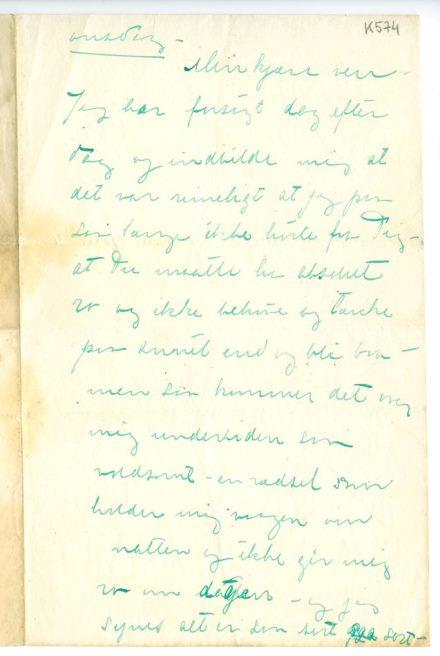 K574
onsdag –
Min kjære ven –
Jeg har forsøgt dag efter
dag og indbilde mig at
det var rimeligt at jeg paa
saa længe ikke hørte fra Dig –
at Du maatte ha absolut
ro og ikke behøve og tænke
paa annet end og bli bra –
men saa kommer det over
mig undertiden saa
voldsomt – en rædsel som
holder mig vaagen om
natten og ikke gir mig
ro om dagen – og jeg
synes alt er saa sort sort –